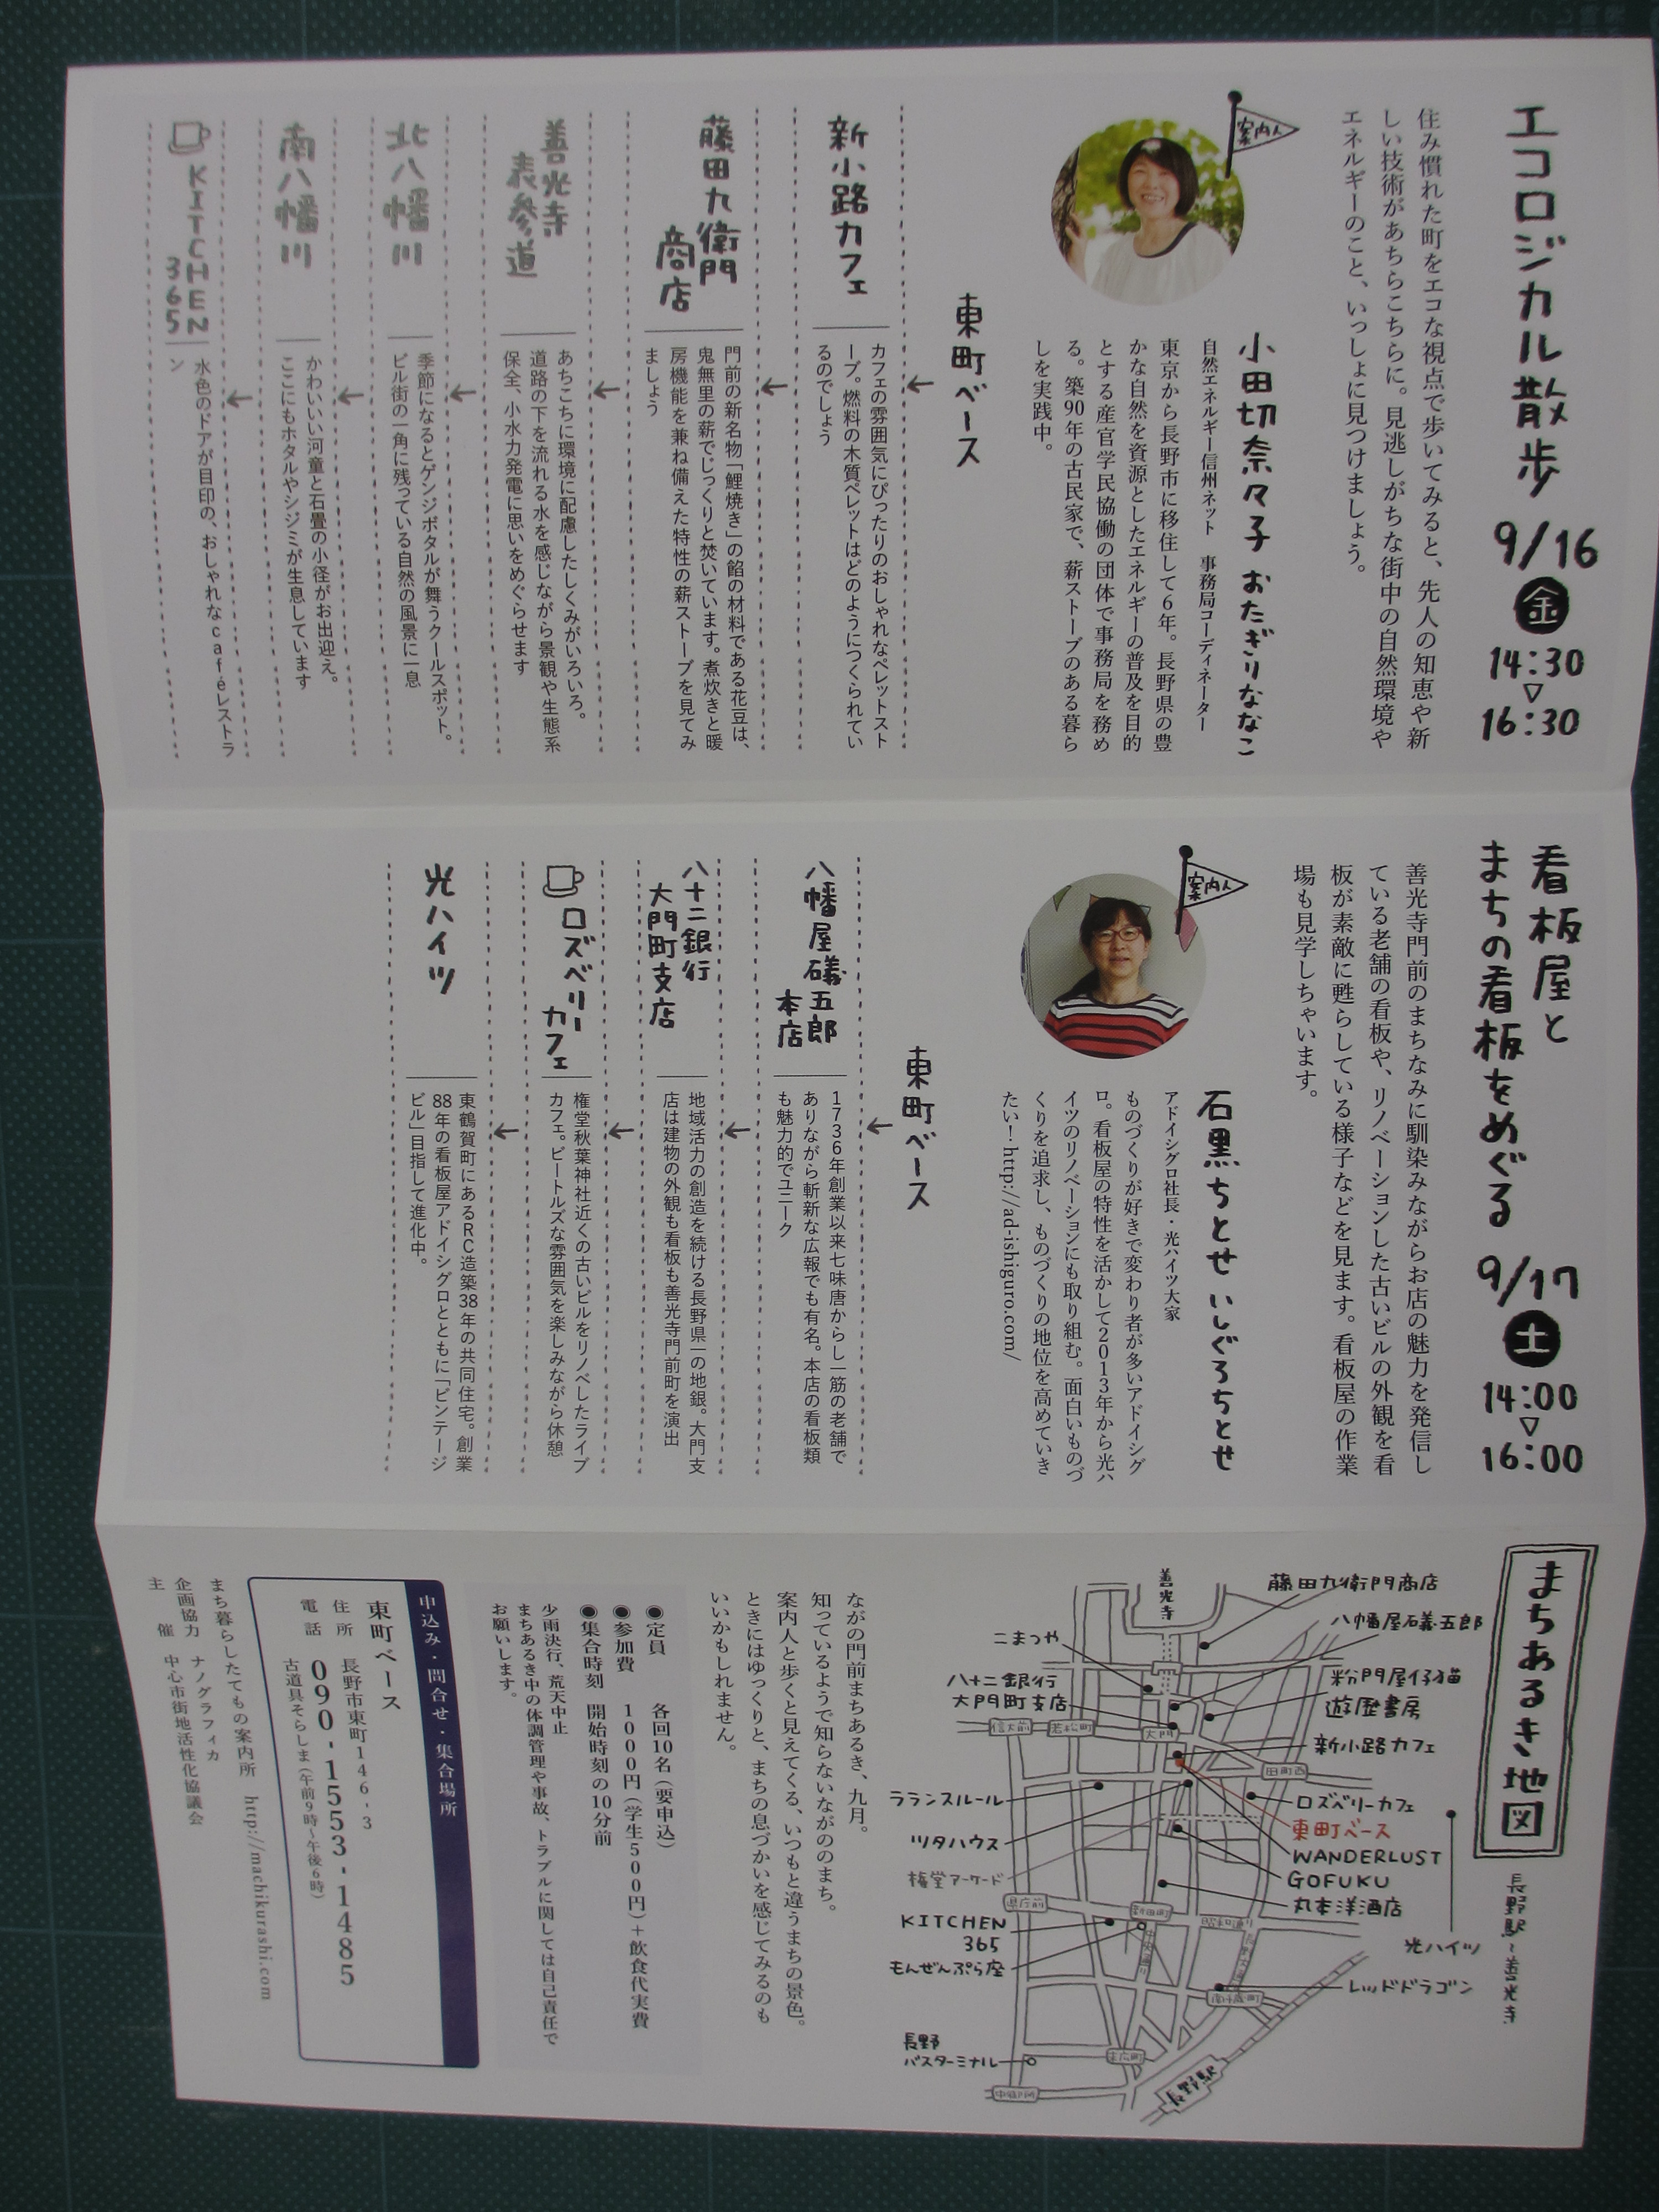 エコロジカル散歩
9/16 金 14:30 ▽ 16:30
住み慣れた町をエコな視点で歩いてみると、先人の知恵や新
しい技術があちらこちらに。見逃しがちな街中の自然環境や
エネルギーのこと、いっしょに見つけましょう。
案内人
小田切奈々子 おたぎりななこ
自然エネルギー信州ネット 事務局コーディネーター
東京から長野市に移住して6年。長野県の豊
かな自然を資源としたエネルギーの普及を目的
とする産官学民協働の団体で事務局を務め
る。築90年の古民家で、薪ストーブのある暮ら
しを実践中。
東町ベース
新小路カフェ
カフェの雰囲気にぴったりのおしゃれなペレットスト
ーブ。燃料の木質ペレットはどのようにつくられてい
るのでしょう
藤田九衛門
商店
門前の新名物「鯉焼き」の餡の材料である花豆は、
鬼無里の薪でじっくりと焚いています。煮炊きと暖
房機能を兼ね備えた特性の薪ストーブを見てみ
ましょう
善光寺
表参道
あちこちに環境に配慮したしくみがいろいろ。
道路の下を流れる水を感じながら景観や生態系
保全、小水力発電に思いをめぐらせます
北八幡川
季節になるとゲンジボタルが舞うクールスポット。
ビル街の一角に残っている自然の風景に一息
南八幡川
かわいいい河童と石畳の小径がお出迎え。
ここにもホタルやシジミが生息しています
KITCHEN
365
水色のドアが目印の、おしゃれなcaféレストラ
ン
看板屋と
まちの看板をめぐる
9/17 土 14:00 ▽ 16:00
善光寺門前のまちなみに馴染みながらお店の魅力を発信し
ている老舗の看板や、リノベーションした古いビルの外観を看
板が素敵に甦らしている様子などを見ます。看板屋の作業
場も見学しちゃいます。
案内人
石黒ちとせ いしぐろちとせ
アドイシグロ社長・光ハイツ大家
ものづくりが好きで変わり者が多いアドイシグ
ロ。看板屋の特性を活かして2013年から光ハ
イツのリノベーションにも取り組む。面白いものづ
くりを追求し、ものづくりの地位を高めていき
たい！http://ad-ishiguro.com/
東町ベース
八幡屋礒五郎
本店
1736年創業以来七味唐からし一筋の老舗で
ありながら斬新な広報でも有名。本店の看板類
も魅力的でユニーク
八十二銀行
大門町支店
地域活力の創造を続ける長野県一の地銀。大門支
店は建物の外観も看板も善光寺門前町を演出
ロズベリー
カフェ
権堂秋葉神社近くの古いビルをリノベしたライブ
カフェ。ビートルズな雰囲気を楽しみながら休憩
光ハイツ
東鶴賀町にあるRC造築38年の共同住宅。創業
88年の看板屋アドイシグロとともに「ビンテージ
ビル」目指して進化中。
まちあるき地図
長野駅～善光寺
善光寺
藤田九衛門商店
八幡屋礒五郎
こまつや
粉門屋仔猫
八十二銀行
大門町支店
遊歴書房
信大前
若松町
大門
新小路カフェ
田町西
ラランスルール
ロズベリーカフェ
東町ベース
ツタハウス
WANDERLUST
権堂アーケード
GOFUKU
丸本洋酒店
県庁前
新田町
昭和通り
KITCHEN
365
中央通り
光ハイツ
もんぜんぷら座
レッドドラゴン
南千歳町
長野
バスターミナル
末広町
長野駅
ながの門前まちあるき、九月。
知っているようで知らないながののまち。
案内人と歩くと見えてくる、いつもと違うまちの景色。
ときにはゆっくりと、まちの息づかいを感じてみるのも
いいかもしれません。
●定員 各回10名（要申込）
●参加費 1000円（学生500円）＋飲食代実費
●集合時刻 開始時刻の10分前
少雨決行、荒天中止
まちあるき中の体調管理や事故、トラブルに関しては自己責任で
お願いします。
申込み・問合せ・集合場所
東町ベース
住所 長野市東町146-3
電話 090-1553-1485
古道具そらしま（午前9時～午後6時）
まち暮らしたてもの案内所 http://machikurashi.com
企画協力 ナノグラフィカ
主催 中心市街地活性化協議会